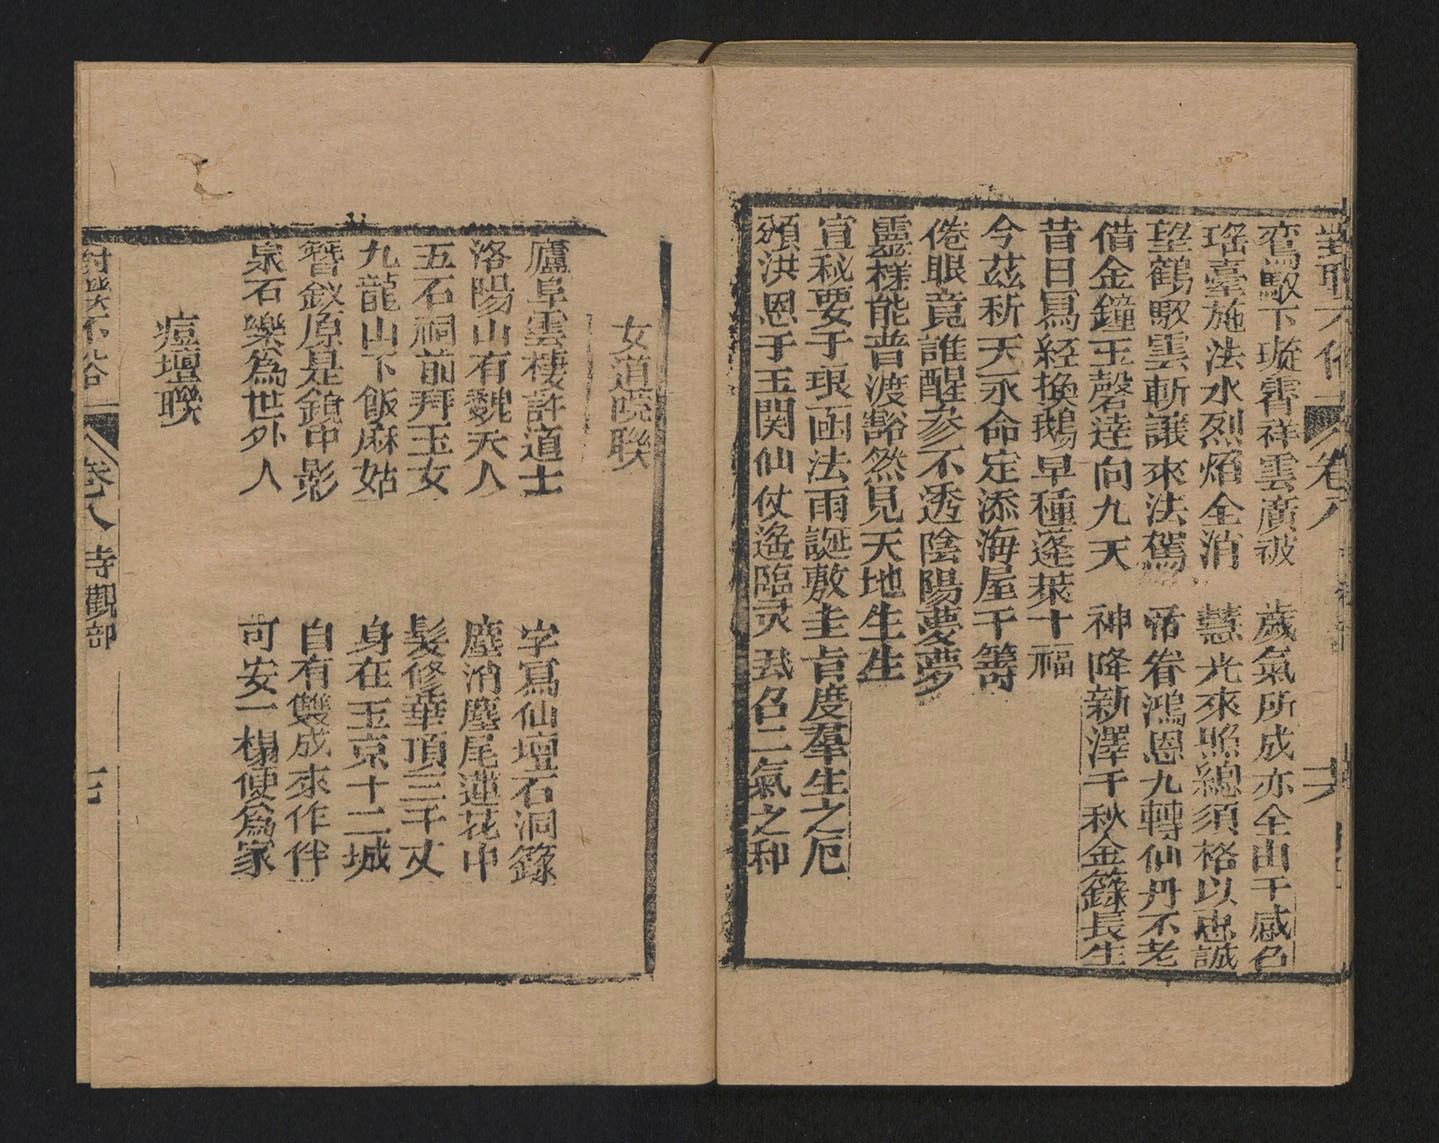 對聯不俗 卷八 六
鸞馭下璇霄祥雲廣被 歲氣所成亦全由干感色
瑤臺施法水烈焰全消 慧光來照總須格以忠誠
望鶴馭雲軿讓來法駕 帝眷鴻恩九轉仙丹不老
借金鐘玉磬達向九天 神降新澤千秋金籙長生
昔日爲經換鵝早種蓬萊十福
今茲祈天永命定添海屋千籌
倦眼竟誰醒參不透陰陽夢夢
靈樣能普渡豁然見天地生生
宣秘要于琅函法雨誕敷圭旨度羣生之厄
頒洪恩于玉関仙仗遙臨灵 召二氣之和
女道院聯
廬阜雲棲許道士 字寫仙壇石洞籙
洛陽山有魏夫人 塵消麈尾蓮花中
五石祠前拜玉女 髮修華頂三千丈
九龍山下飯麻姑 身在玉京十二城
簪釵原是鏡中影 自有雙成來作伴
泉石樂為世外人 可安一榻便爲家
瘟壇聯
對聯不俗 卷八 寺觀部 七